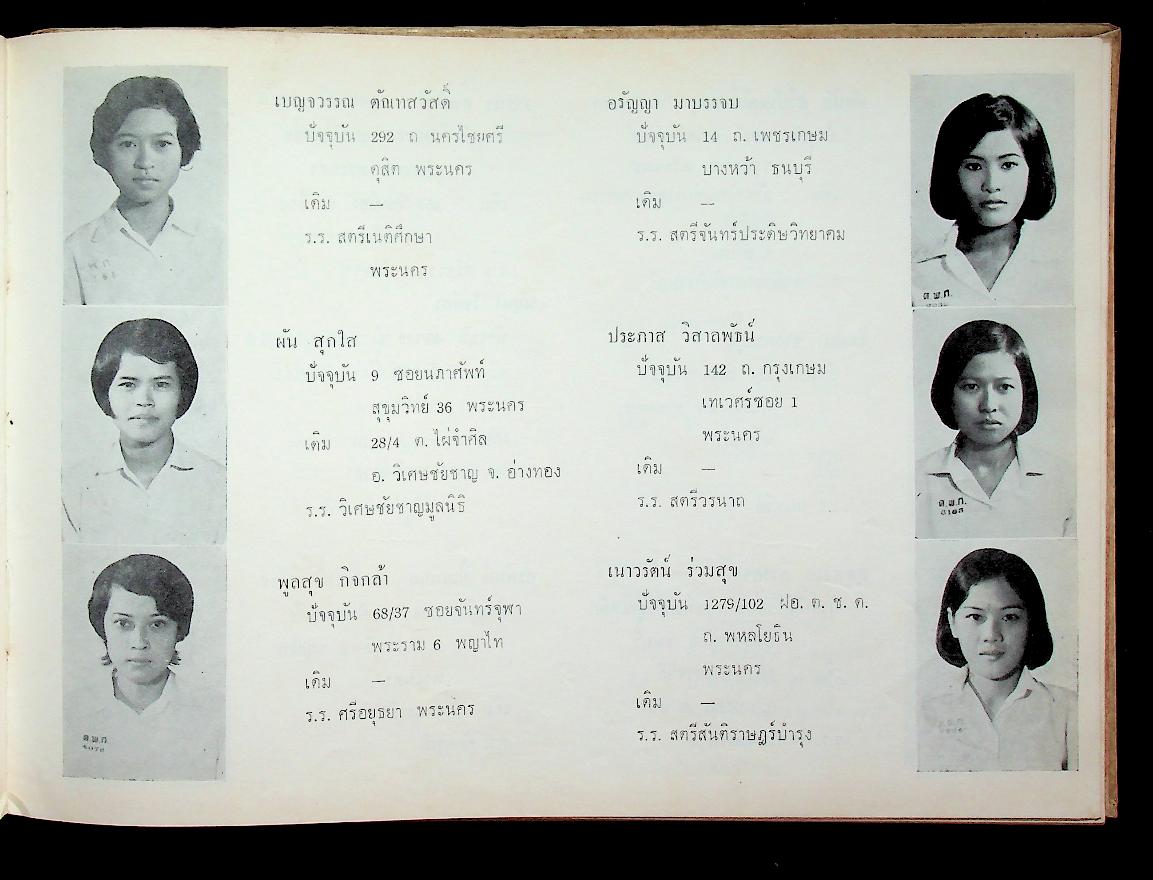 เบญจวรรณ ตัณฑสวัสดิ์
ปัจจุบัน 292 ถ นครไชยศรี
ดุสิต พระนคร
เดิม —
ร.ร. สตรีเนติศึกษา
พระนคร
ผัน สุกใส
ปัจจุบัน 9 ซอยนภาศัพท์
สุขุมวิทย์ 36 พระนคร
เดิม 28/4 ต. ไผ่จำศิล
อ. วิเศษชัยชาญ จ. อ่างทอง
ร.ร. วิเศษชัยชาญมูลนิธิ
พูลสุข กิจกล้า
ปัจจุบัน 68/37 ซอยจันทร์จุฬา
พระราม 6 พญาไท
เดิม —
ร.ร. ศรีอยุธยา พระนคร
อรัญญา มาบรรจบ
ปัจจุบัน 14 ถ. เพชรเกษม
บางหว้า ธนบุรี
เดิม —
ร.ร. สตรีจันทร์ประดิษวิทยาคม
ประภาส วิสาลพัธน์
ปัจจุบัน 142 ถ. กรุงเกษม
เทเวศร์ซอย 1
พระนคร
เดิม —
ร.ร. สตรีวรนาถ
เนาวรัตน์ ร่วมสุข
ปัจจุบัน 1279/102 ฝอ. ต. ช. ด.
ถ. พหลโยธิน
พระนคร
เดิม —
ร.ร. สตรีสันติราษฎร์บำรุง
ต.พ.ก.
ต.พ.ก.
ต.พ.ก